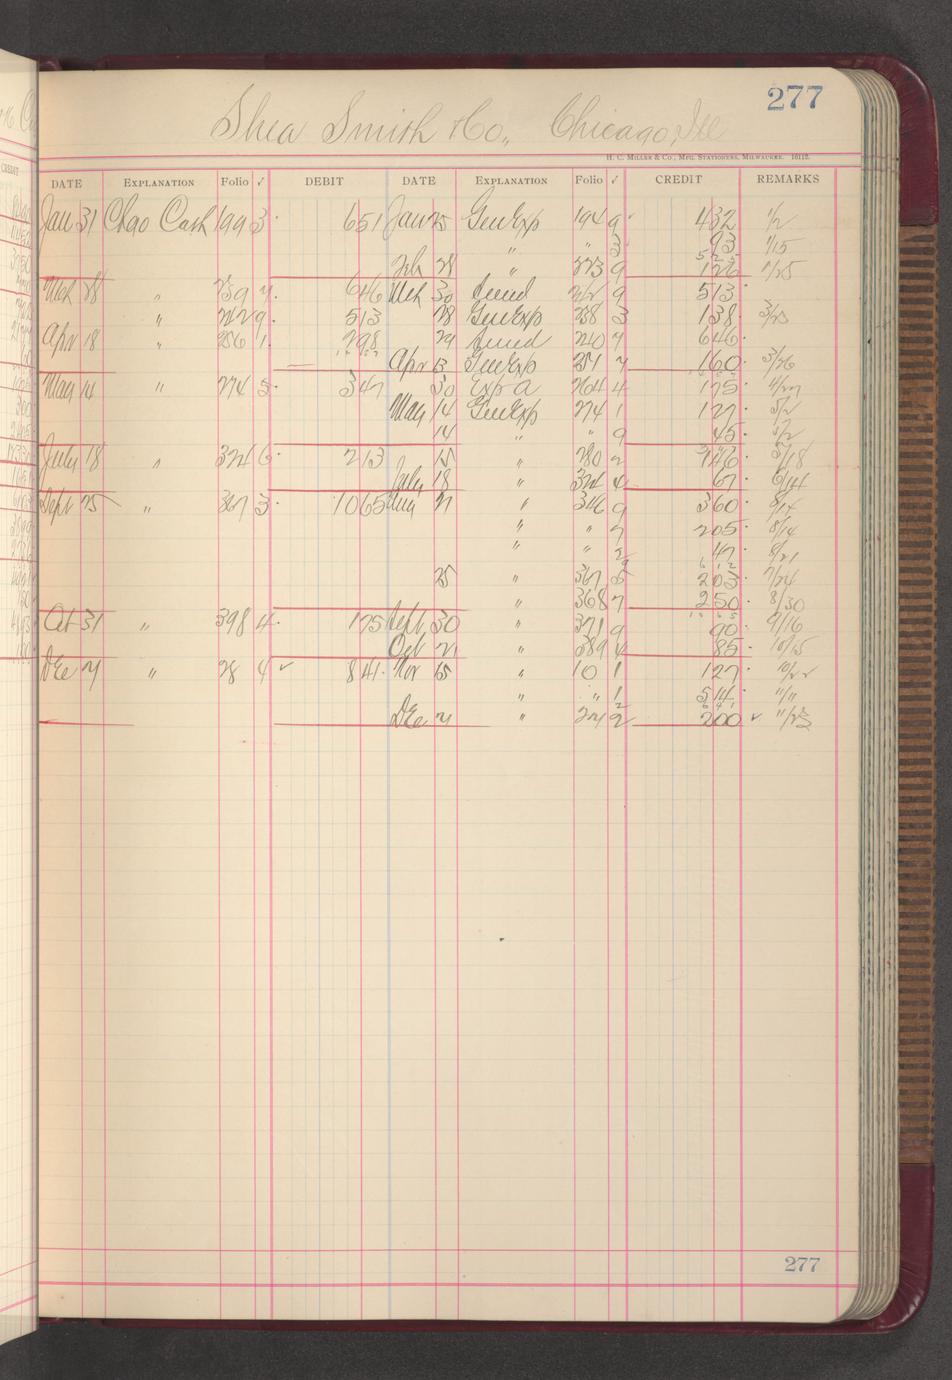 277
Shea Smith & Co., Chicago, Ill
H. C. Miller & Co., Mfg. Stationers, Milwaukee. 16112.
DATE EXPLANATION Folio √ DEBIT DATE EXPLANATION Folio √ CREDIT REMARKS
Jan 31 Chgo Cash 199 3 651 Jan 25 Gen Exp 194 9 432 1/2
" " 3 93 1/15
Feb 28 " 9 126 1/25
Mch 28 " 239 7 646 Mch 30 9 513
" 242 9 513 28 Gen Exp 238 3 138 3/23
Apr 18 " 256 1 298 29 240 7 646
Apr 13 Gen Exp 251 7 160 3/26
May 14 " 274 5 347 30 Exp a 264 4 175 4/27
May 14 Gen Exp 274 1 127 5/2
14 " " 9 45 5/2
July 18 " 324 6 213 15 " 280 2 146 5/18
July 18 " 324 4 67 6/14
Sept 25 " 367 3 1065 Aug 21 " 346 9 360 8/4
" " 7 205 8/14
" " 2 47 8/21
25 " 367 5 203 7/24
" 368 7 250 8/30
Oct 31 " 398 4 175 Sept 30 " 371 9 90 9/16
Oct 21 " 389 4 85 10/15
Dec 21 " 28 4 √ 841 Nov 15 " 10 1 127 10/22
" " 1 514 "/11
Dec 21 " 9 200 √ "/23
277